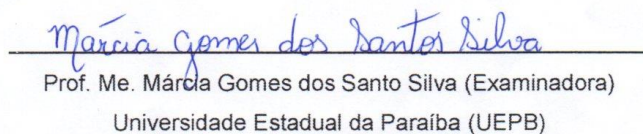 Márcia Gomes dos Santos Silva
Prof. Me. Márcia Gomes dos Santo Silva (Examinadora)
Universidade Estadual da Paraíba (UEPB)